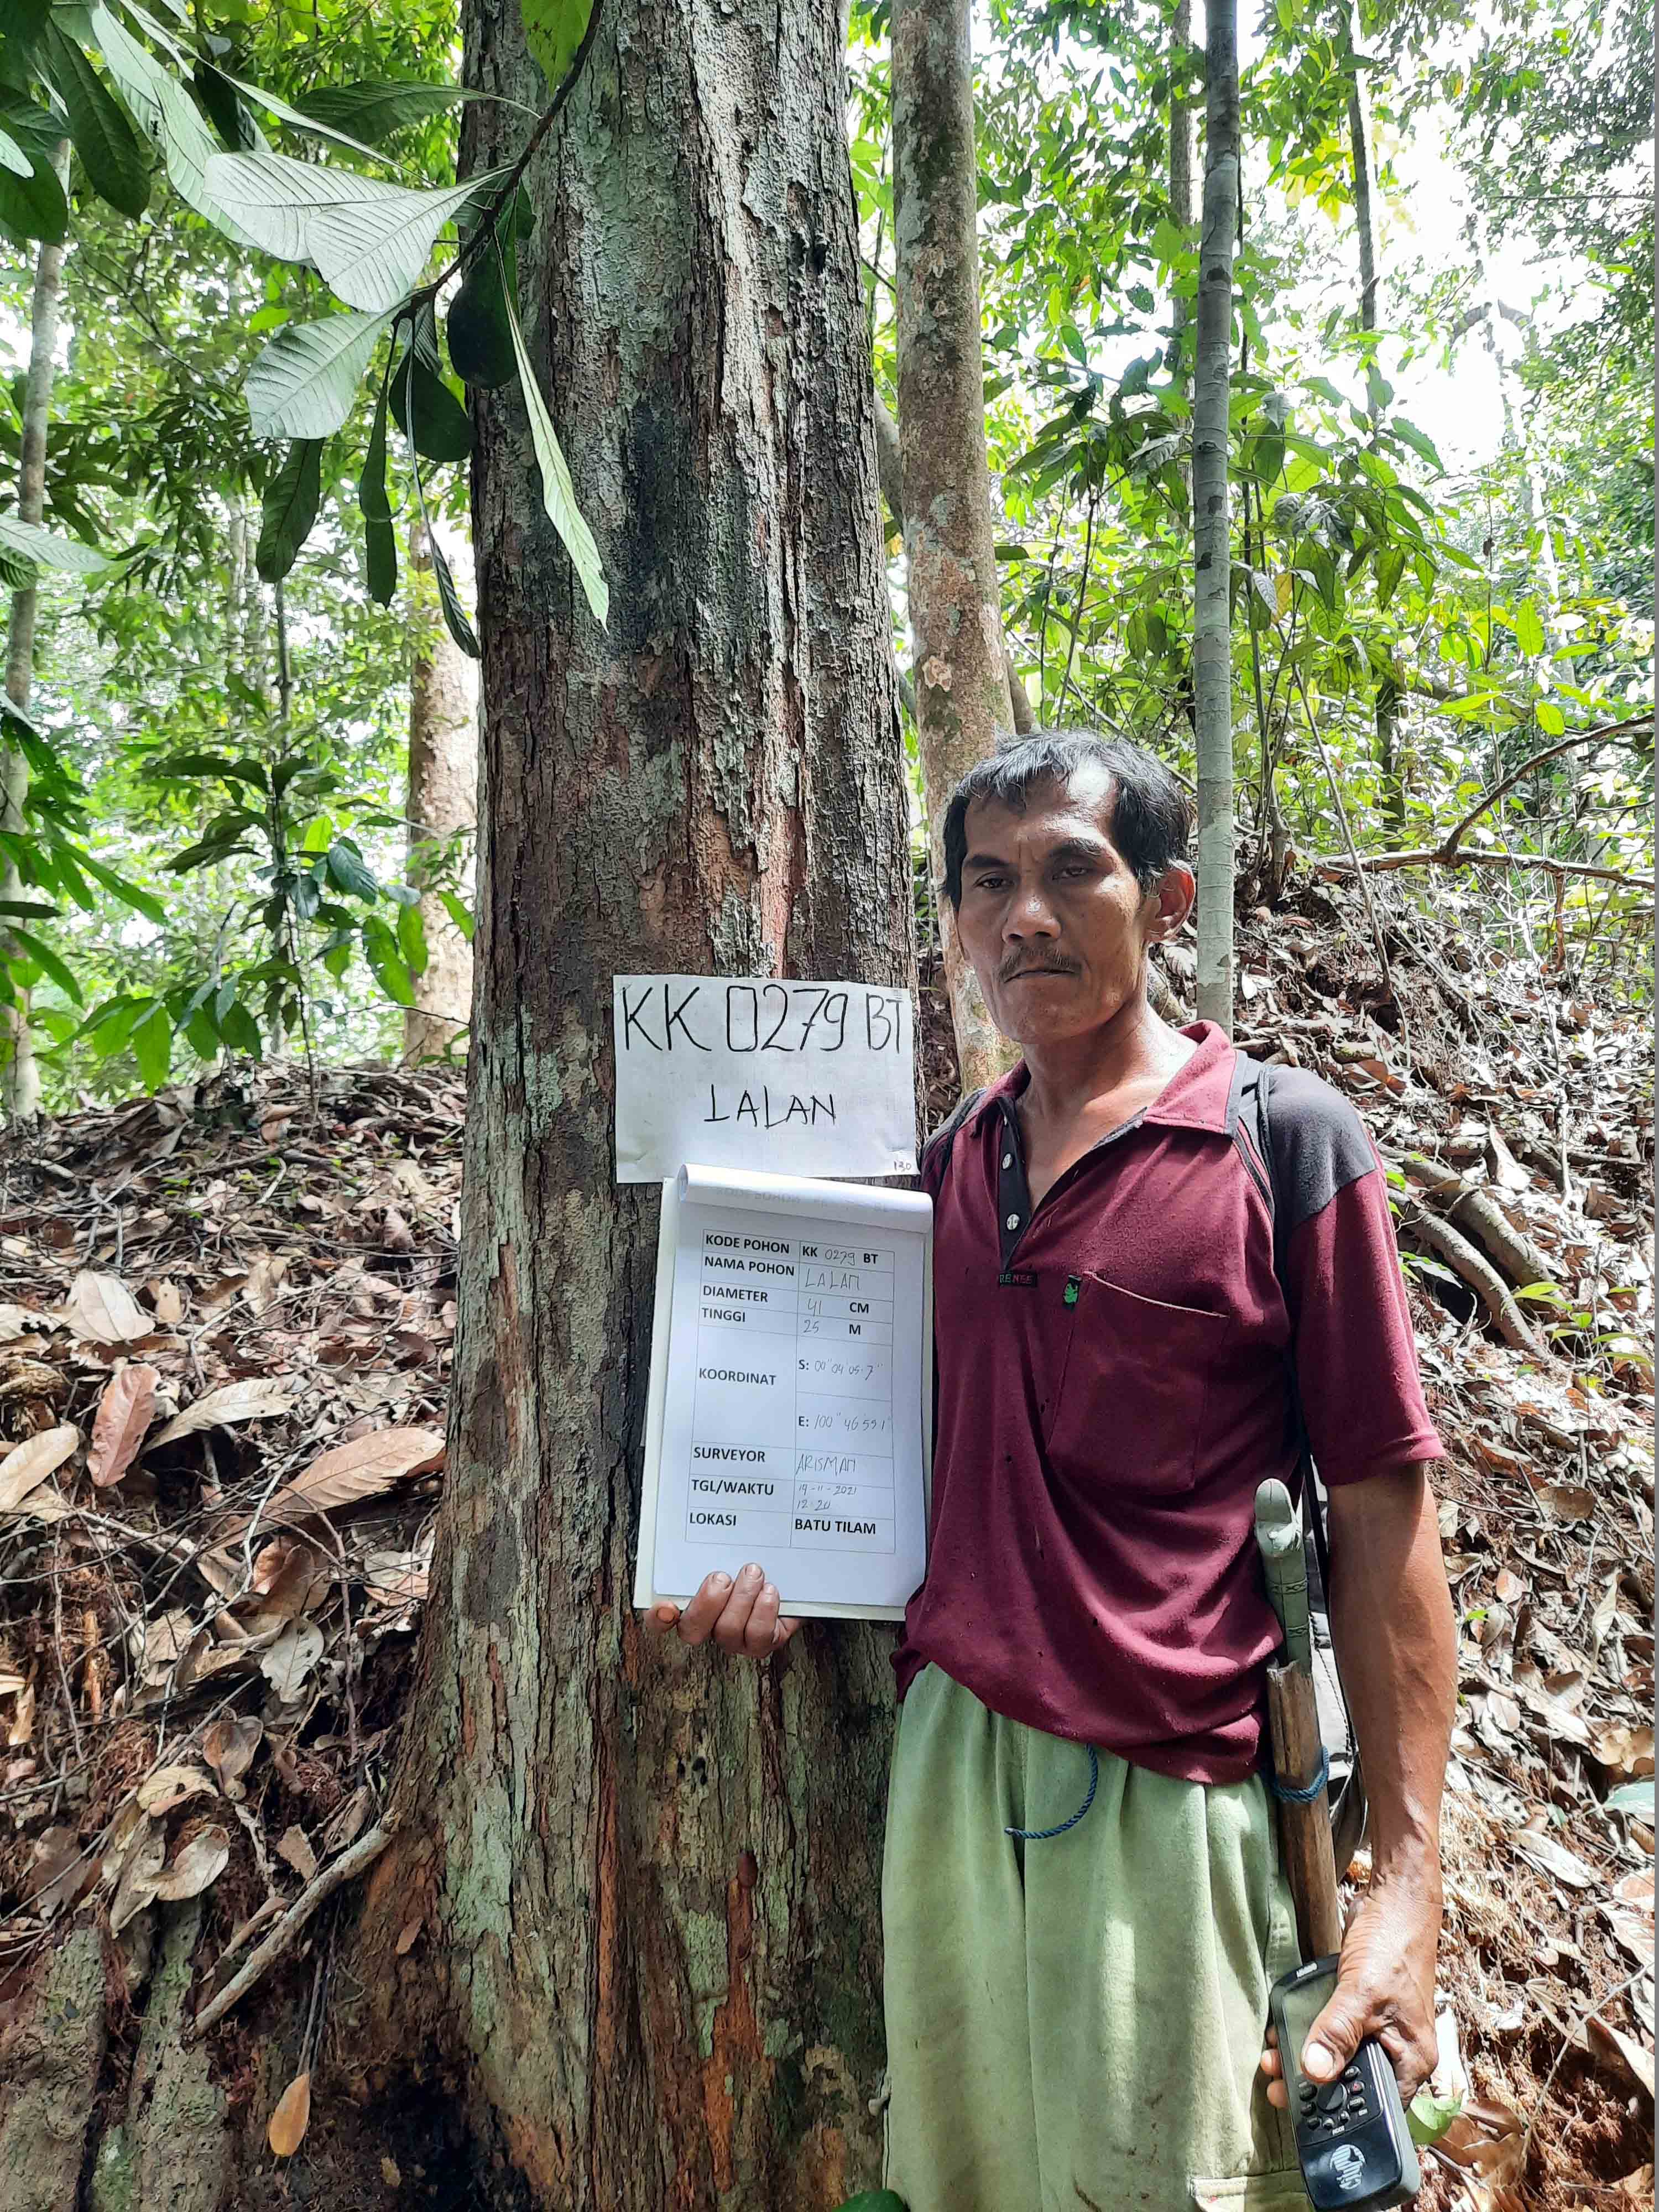 KK 0279 BT
LALAN
130
KODE POHON KK 0279 BT
NAMA POHON LALAN
DIAMETER 41 CM
TINGGI 25 M
KOORDINAT
S: 00° 04' 05.7"
E: 100° 46' 55.1"
SURVEYOR ARISMAN
TGL/WAKTU 19-11-2021
12:20
LOKASI BATU TILAM
RENEE